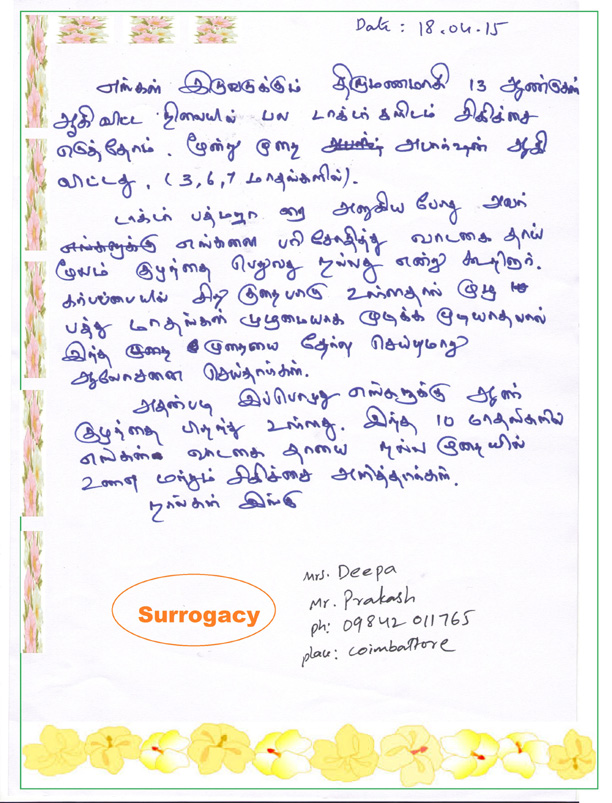 Date : 18.04.15
எங்கள் இருவருக்கும் திருமணமாகி 13 ஆண்டுகள்
ஆகிவிட்ட நிலையில் பல டாக்டர்களிடம் சிகிச்சை
எடுத்தோம். மூன்று முறை அபார்ஷன் ஆகி
விட்டது. (3,6,7 மாதங்களில்).
டாக்டர் அணுகிய போது அவர்
எங்களுக்கு எங்களை பரிசோதித்து வாடகை தாய்
மூலம் குழந்தை பெறுவது நல்லது என்று கூறினார்.
கர்பப்பையில் சிறு குறைபாடு உள்ளதால் முழு
பத்து மாதங்கள் முழுமையாக முடிக்க முடியாததால்
இந்த முறை முறையை தேர்வு செய்யுமாறு
ஆலோசனை செய்தார்கள்.
அதன்படி இப்பொழுது எங்களுக்கு ஆண்
குழந்தை பிறந்து உள்ளது. இந்த 10 மாதங்களில்
எங்கள் வாடகை தாயை நல்ல முறையில்
உணவு மற்றும் சிகிச்சை அளித்தார்கள்.
நாங்கள் இங்கு
Mrs. Deepa
Mr. Prakash
ph: 09842 011765
place: Coimbattore
Surrogacy